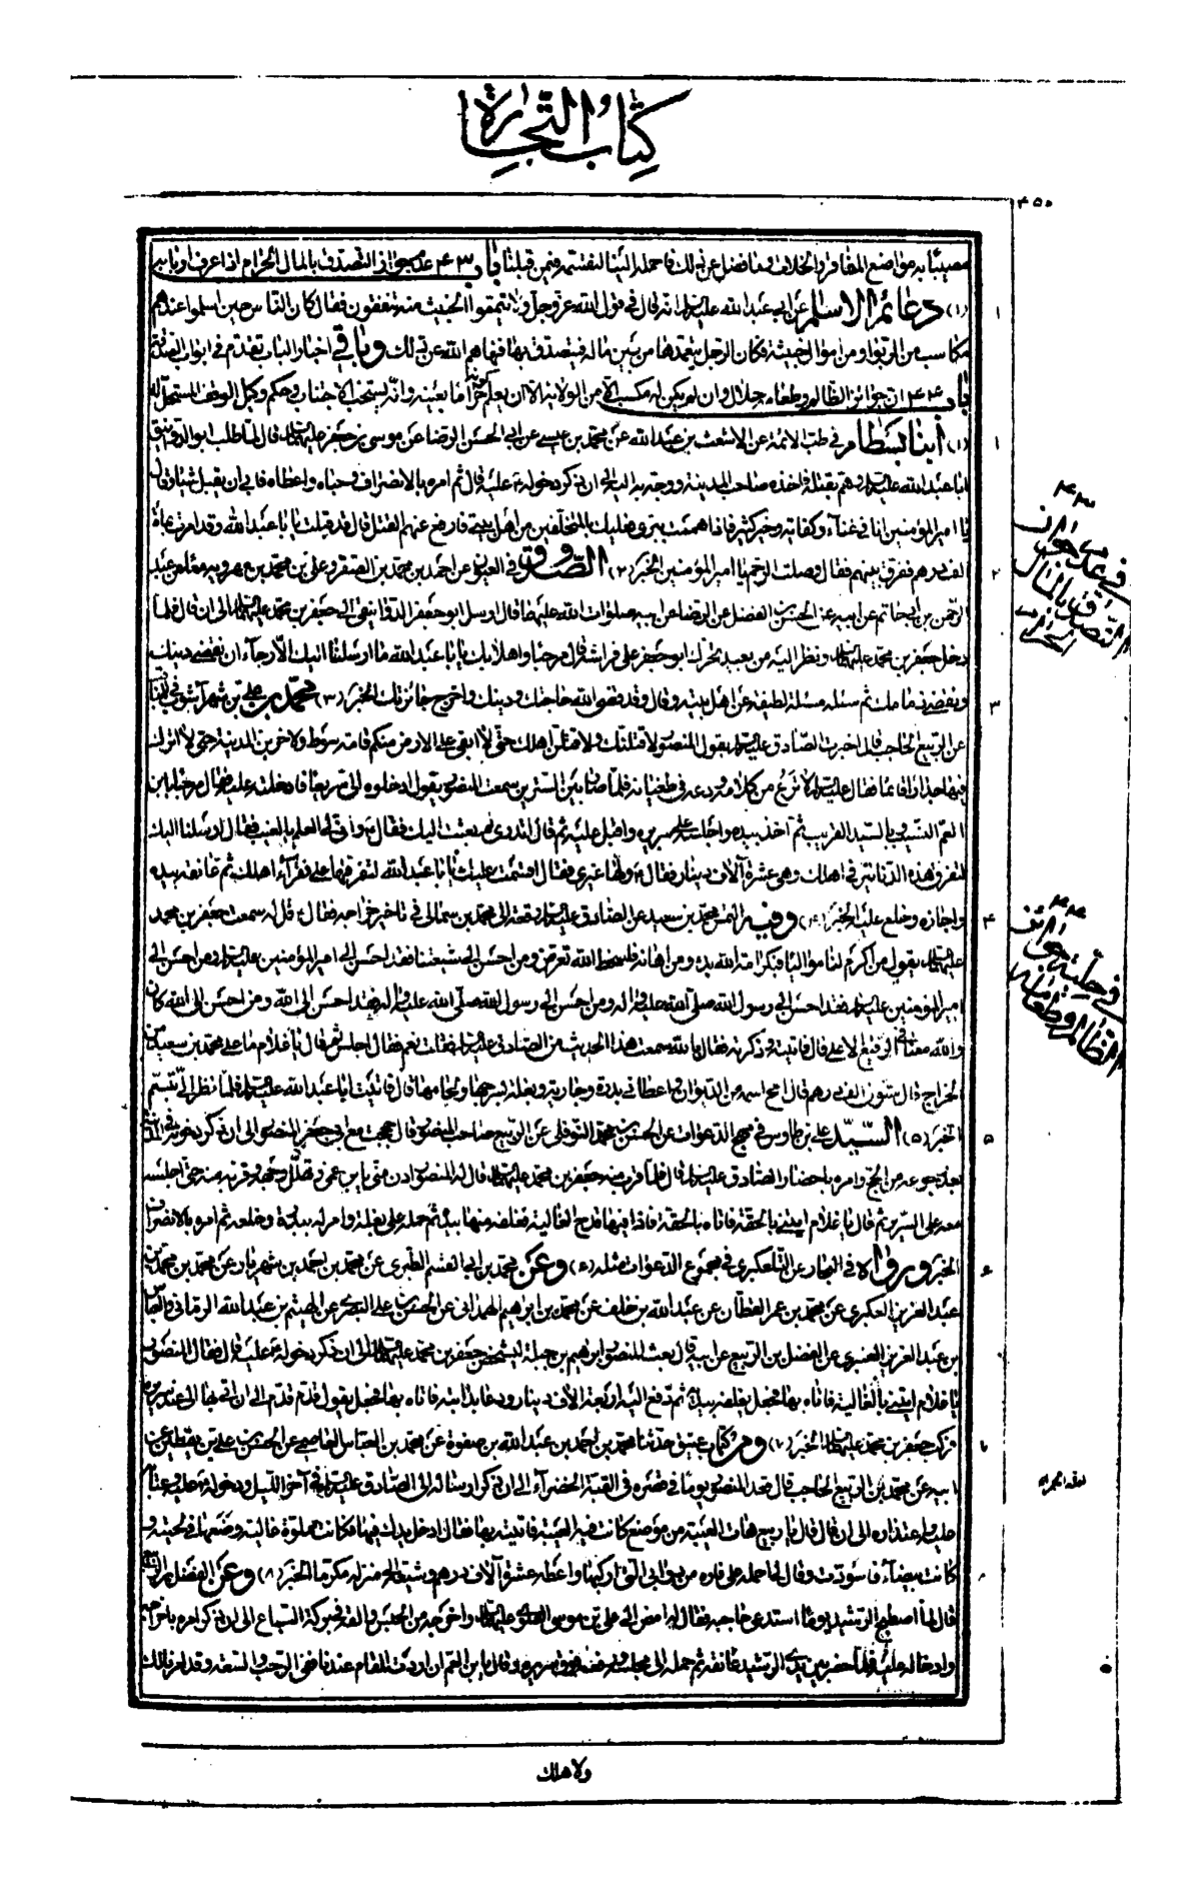 كتاب التجارة
٤٥٠
مصيبًا به مواضع المفاقر والخلات وما فضل عن ذلك فاحمله الينا لنقسمه فيمن قبلنا باب ٤٣ عدم جواز التصدق بالمال الحرام اذا عرف اربابه
(١) دعائم الاسلام عن ابي عبد الله عليه السلام انه قال في قول الله عز وجل ولا تيمموا الخبيث منه تنفقون فقال كان الناس حين اسلموا عندهم
مكاسب من الربوا ومن اموال خبيثة فكان الرجل يتعمدها من بين ماله فيتصدق بها فنهاهم الله عن ذلك وباقي اخبار الباب تقدم في ابواب الصدقة
باب ٤٤ ان جوائز الظالم وطعامه حلال وان لم يكن له مكسب الا من الولاية الا ان يعلم كونه حراما بعينه وانه يستحب الاجتناب وحكم وكيل الوقف المستحل له
(١) ابنا بسطام في طب الائمة عن الاشعث بن عبد الله عن محمد بن عيسى عن ابي الحسن الرضا عن موسى بن جعفر عليهم السلام قال لما طلب ابو الدوانيق
ابا عبد الله عليه السلام وهم بقتله فاخذه صاحب المدينة ووجه به اليه الى ان ذكر دخوله عليه قال ثم امره بالانصراف وحباه واعطاه فابى ان يقبل شيئا وقال
يا امير المؤمنين انا في غناء وكفاية وخير كثير فاذا هممت ببري فعليك بالمتخلفين من اهل بيتي فارفع عنهم القتل قال قد قبلت يا ابا عبد الله وقد امرت بمائة
الف درهم ففرق بينهم فقال وصلت الرحم يا امير المؤمنين الخبر (٢) الصدوق في العيون عن احمد بن محمد بن الصقر وعلي بن محمد بن مهرويه معا عن عبد
الرحمن بن ابي حاتم عن ابيه عن الحسن بن الفضل عن الرضا عن ابيه صلوات الله عليهما قال ارسل ابو جعفر الدوانيقي الى جعفر بن محمد عليهما السلام الى ان قال فلما
دخل جعفر بن محمد عليهما السلام ونظر اليه من بعيد تحرك ابو جعفر على فراشه قال مرحبا واهلا بك يا ابا عبد الله ما ارسلنا اليك الا رجاء ان نقضي دينك
ونقضي ذمامك ثم سئله مسئلة لطيفة عن اهل بيته وقال وقد قضى الله حاجتك ودينك واخرج جائزتك الخبر (٣) محمد بن علي بن شهر آشوب في المناقب
عن الربيع الحاجب قال اخبرت الصادق عليه السلام بقول المنصور لاقتلنك ولاقتلن اهلك حتى لا ابقي على الارض منكم قامة سوط ولاخربن المدينة حتى لا اترك
فيها جدارا قائما فقال عليه السلام لا ترع من كلامه ودعه في طغيانه فلما صار بين السترين سمعت المنصور يقول ادخلوه الي سريعا فادخلته عليه فقال مرحبا بابن
العم النسيب وبالسيد القريب ثم اخذ بيده واجلسه على سريره واقبل عليه ثم قال اتدري لم بعثت اليك فقال واني لي العلم بالغيب فقال ارسلنا اليك
لتفرق هذه الدنانير في اهلك وهي عشرة آلاف دينار فقال ولها غيري فقال اقسمت عليك يا ابا عبد الله لتفرقها على فقراء اهلك ثم عانقه بيده
واجازه وخلع عليه الخبر (٤) وفيه التمس محمد بن سعيد عن الصادق عليه السلام رقعة الى محمد بن سمالي في تاخير خراجه فقال قل له سمعت جعفر بن محمد
عليهما السلام يقول من اكرم لنا مواليا فبكرامة الله بدء ومن اهانه فلسخط الله تعرض ومن احسن الى شيعتنا فقد احسن الى امير المؤمنين عليه السلام ومن احسن الى
امير المؤمنين عليه السلام فقد احسن الى رسول الله صلى الله عليه وآله ومن احسن الى رسول الله صلى الله عليه وآله فقد احسن الى الله ومن احسن الى الله كان
والله معنا في الرفيع الاعلى قال فاتيته وذكرته فقال بالله سمعت هذا الحديث من الصادق عليه السلام فقلت نعم فقال اجلس ثم قال يا غلام ما على محمد بن سعيد من
الخراج قال ستون الف درهم قال امح اسمه من الديوان واعطاني بدرة وجارية وبغلة بسرجها ولجامها قال فاتيت ابا عبد الله عليه السلام فلما نظر الي تبسم
الخبر (٥) السيد علي بن طاوس في مهج الدعوات عن الحسن بن محمد النوفلي عن الربيع صاحب المنصور قال حججت مع ابي جعفر المنصور الى ان ذكر
بعد رجوعه من الحج وامره باحضار الصادق عليه السلام قال فلما قرب منه جعفر بن محمد عليهما السلام قال له المنصور ادن مني يا ابن عمي وتهلل وجهه وقربه منه حتى اجلسه
معه على السرير ثم قال يا غلام ايتني بالحقة فاتاه بالحقة فاذا فيها قدح الغالية فغلفه منها بيده ثم حمله على بغلة وامر له ببدرة وخلعة ثم امره بالانصراف
الخبر ورواه في البحار عن التلعكبري في مجموع الدعوات مثله (٦) وعن محمد بن ابي القاسم الطبري عن محمد بن احمد بن شهريار عن محمد بن محمد بن
عبد العزيز العكبري عن محمد بن عمر القطان عن عبد الله بن خلف عن محمد بن ابراهيم الهمداني عن الحسن بن علي البصري عن الهيثم بن عبد الله الرماني والعباس
بن عبد العزيز العنبري عن الفضل بن الربيع عن ابيه قال بعث المنصور ابراهيم بن جبلة ليشخص جعفر بن محمد عليهما السلام الى ان ذكر دخوله عليه قال فقال المنصور
يا غلام ايتني بالغالية فاتاه بها فجعل يغلفه بيده ثم دفع اليه اربعة الاف دينار ودعا بدابته فاتاه بها فجعل يقول قدم قدم الى ان اتى بها الى عند سريره
فركب جعفر بن محمد عليهما السلام الخبر (٧) ومن كتاب عتيق حدثنا محمد بن احمد بن عبد الله بن صفوة عن محمد بن العباس العاصمي عن الحسن بن علي بن يقطين عن
ابيه عن محمد بن الربيع الحاجب قال قعد المنصور يوما في قصره في القبة الخضراء الى ان ذكر ارساله الى الصادق عليه السلام في آخر الليل ودخوله عليه وعتابه
عليه واعتذاره الى ان قال قال يا ربيع هات العيبة من موضع كانت فيه العيبة فاتيته بها فقال ادخل يدك فيها فكانت مملوة غالية وضعها في لحيته و
كانت بيضاء فاسودت وقال لي احمله على فاره من دوابي التي اركبها واعطه عشرة آلاف درهم وشيعه الى منزله مكرما الخبر (٨) وعن الفضل بن الربيع
قال لما اصطبح الرشيد يوما استدعى حاجبه فقال له امض الى علي بن موسى العلوي عليهما السلام واخرجه من الحبس والقه في بركة السباع الى ان ذكر امره باخراجه
وادخاله عليه فلما حضر بين يدي الرشيد عانقه ثم حمله الى مجلسه ورفعه فوق سريره وقال يا ابن العم ان اردت المقام عندنا ففي الرحب والسعة وقد امرنا لك
١
١
٢
٣
٤
٥
٦
٧
٨
٤٣
في عدم جواز
التصدق بالمال
الحرام
٤٤
في حلية جوائز
الظالم وطعامه
ولاهلك